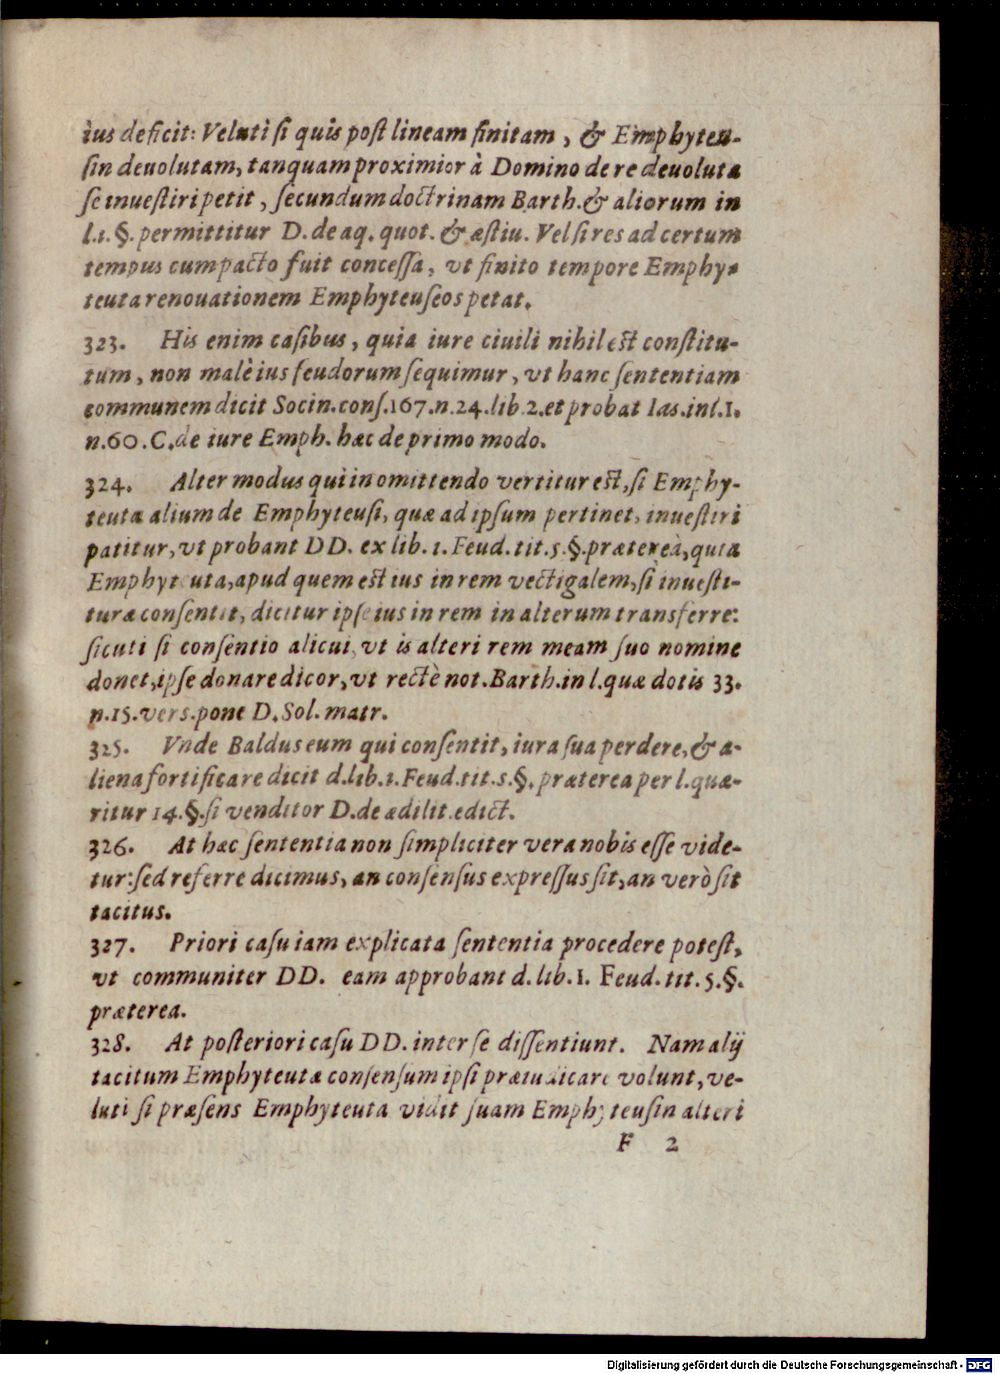 ius deficit: Veluti si quis post lineam finitam, & Emphyteu-
sin deuolutam, tanquam proximior à Domino de re deuoluta
se inuestiri petit, secundum doctrinam Barth. & aliorum in
l.1.§. permittitur D. de aq. quot. & æstiu. Vel si res ad certum
tempus cum pacto fuit concessa, vt finito tempore Emphy-
teuta renouationem Emphyteuseos petat.
323. His enim casibus, quia iure ciuili nihil est constitu-
tum, non malè ius feudorum sequimur, vt hanc sententiam
communem dicit Socin. cons. 167. n. 24. lib. 2. et probat Ias. in l. 1.
n. 60. C. de iure Emph. hæc de primo modo.
324. Alter modus qui in omittendo vertitur est, si Emphy-
teuta alium de Emphyteusi, quæ ad ipsum pertinet, inuestiri
patitur, vt probant DD. ex lib. 1. Feud. tit. 5. §. præterea, quia
Emphyteuta, apud quem est ius in rem vectigalem, si inuesti-
turæ consentit, dicitur ipse ius in rem in alterum transferre:
sicuti si consentio alicui, vt is alteri rem meam suo nomine
donet, ipse donare dicor, vt rectè not. Barth. in l. quæ dotis 33.
n. 15. vers. pone D. Sol. matr.
325. Vnde Baldus eum qui consentit, iura sua perdere, & a-
liena fortificare dicit d. lib. 1. Feud. tit. 5. §. præterea per l. quæ-
ritur 14. §. si venditor D. de ædilit. edict.
326. At hæc sententia non simpliciter vera nobis esse vide-
tur: sed referre dicimus, an consensus expressus sit, an verò sit
tacitus.
327. Priori casu iam explicata sententia procedere potest,
vt communiter DD. eam approbant d. lib. 1. Feud. tit. 5. §.
præterea.
328. At posteriori casu DD. inter se dissentiunt. Nam alij
tacitum Emphyteutæ consensum ipsi præiudicare volunt, ve-
luti si præsens Emphyteuta vidit suam Emphyteusin alteri
F 2
Digitalisierung gefördert durch die Deutsche Forschungsgemeinschaft - DFG